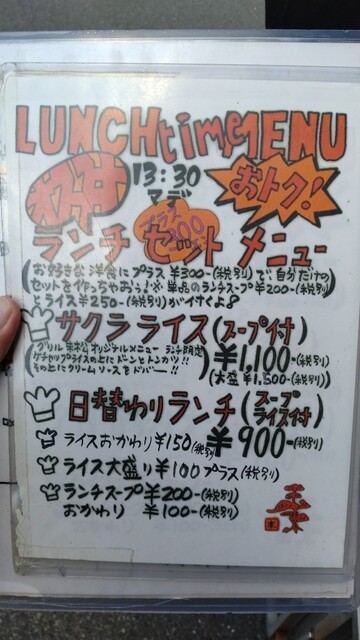 LUNCH time MENU
13:30
マデ
おトク!
プラス
300
ランチ セット メニュー
(お好きな洋食にプラス ¥300-(税別)で、自分だけの
セットを作っちゃおう!※ 単品のランチスープ¥200-(税別)
とライス¥250-(税別)がイイよ)
サクラ ライス (スープ付)
ランチ限定
¥1,100-(税別)
(大盛 ¥1,500-(税別))
ケチャップライスの上にドーンとトンカツ!!
その上にクリームソースをドバー!!
日替わりランチ (スープ ライス付)
¥900-(税別)
ライスおかわり ¥150(税別)
ライス大盛り ¥100プラス(税別)
ランチスープ ¥200-(税別)
おかわり ¥100-(税別)